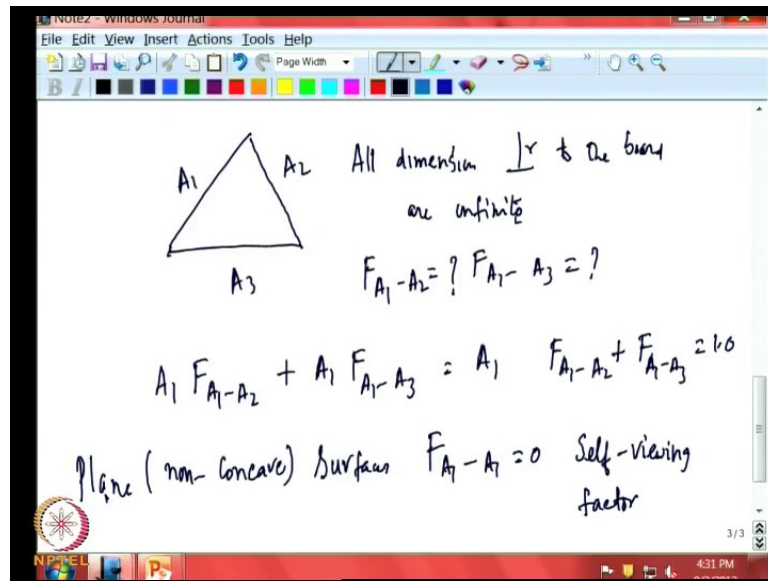 Note2 - Windows Journal
File Edit View Insert Actions Tools Help
Page Width
B I
A1
A2
All dimension ⊥r to the board
are infinite
A3
F_{A1-A2} = ? F_{A1-A3} = ?
A1 F_{A1-A2} + A1 F_{A1-A3} = A1 F_{A1-A2} + F_{A1-A3} = 1.0
Plane (non-concave) Surfaces F_{A1-A1} = 0 Self-viewing
factor
3/3
NPTEL
4:31 PM